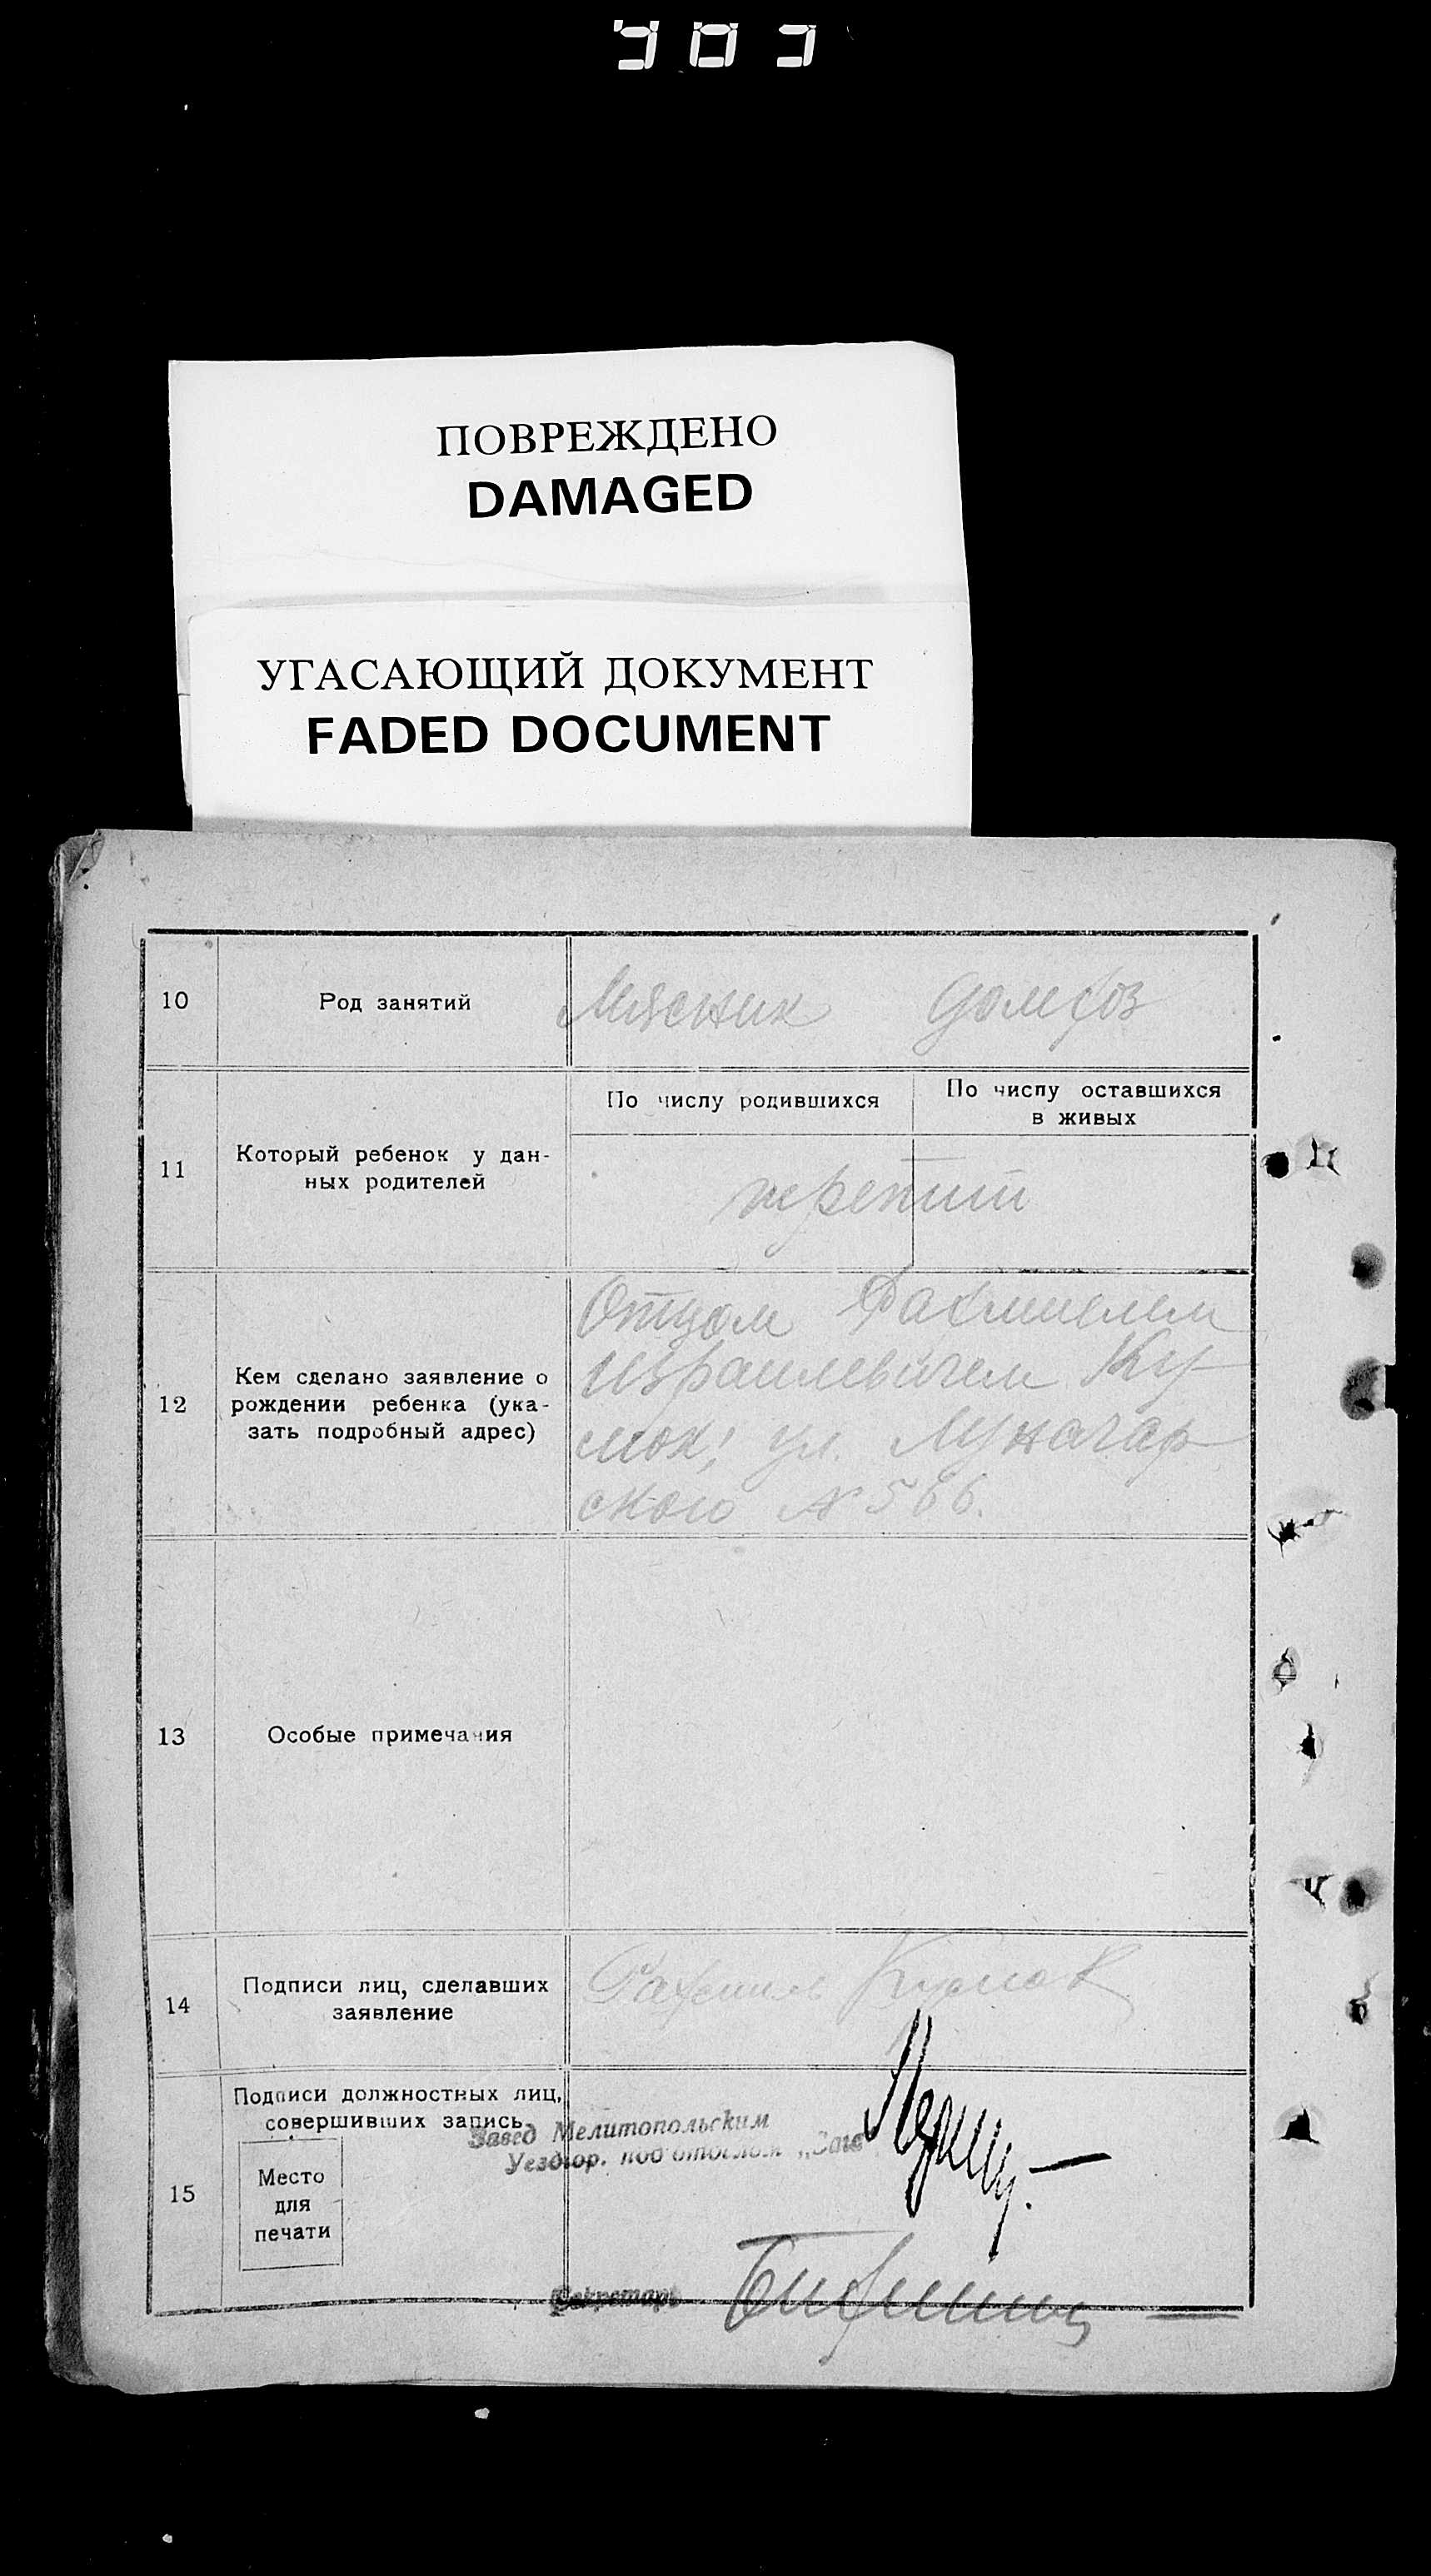 ПОВРЕЖДЕНО
DAMAGED
УГАСАЮЩИЙ ДОКУМЕНТ
FADED DOCUMENT
10 Род занятий Мясник домхоз
По числу родившихся
По числу оставшихся
в живых
11 Который ребенок у дан-
ных родителей
12 Кем сделано заявление о
рождении ребенка (ука-
зать подробный адрес)
Отцом Рахмилем
Израилевичем Ку-
мок, ул. Луначар-
ского № 566.
13 Особые примечания
14 Подписи лиц, сделавших
заявление
Рахмиль Кумок
15 Подписи должностных лиц,
совершивших запись
Место
для
печати
Завед Мелитопольским
Уездгор. под'отделом „Загс
Секретарь